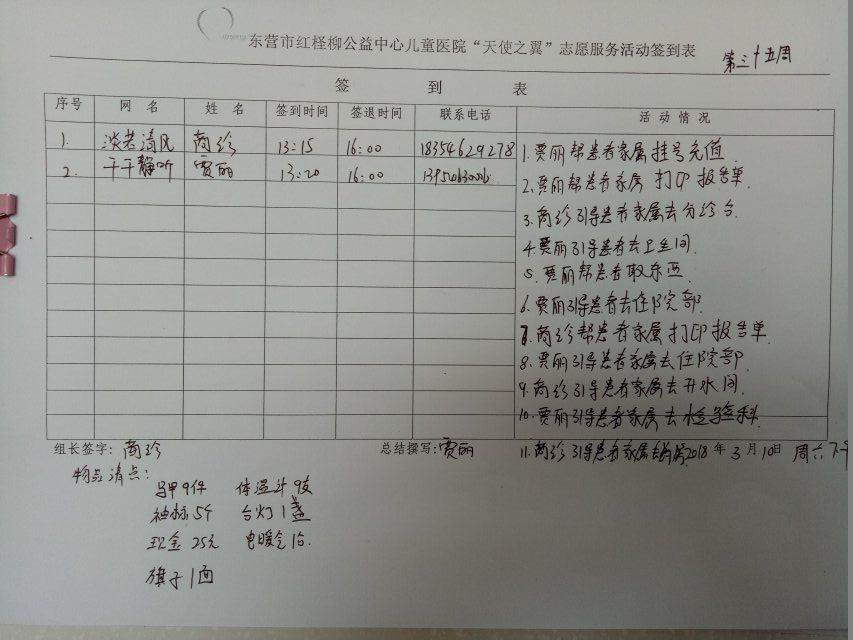 东营市红柽柳公益中心儿童医院“天使之翼”志愿服务活动签到表 第三十五周
签到表
序号 网名 姓名 签到时间 签退时间 联系电话 活动情况
1. 淡若清风 商珍 13:15 16:00 18354629278
2. 千千静听 贾丽 13:20 16:00
1.贾丽帮患者家属挂号充值
2.贾丽帮患者家属打印报告单
3.商珍引导患者家属去分诊台.
4.贾丽引导患者去卫生间.
5.贾丽帮患者取东西
6.贾丽引导患者去住院部.
7.商珍帮患者家属打印报告单.
8.贾丽引导患者家属去住院部
9.商珍引导患者家属去开水间.
10.贾丽引导患者家属去检验科.
组长签字:商珍 总结撰写:贾丽 11.商珍引导患者家属去 2018年3月10日 周六下午
物品清点:
马甲9件 体温计9支
袖标5个 台灯1盏
现金25元 电暖气1台.
旗子1面